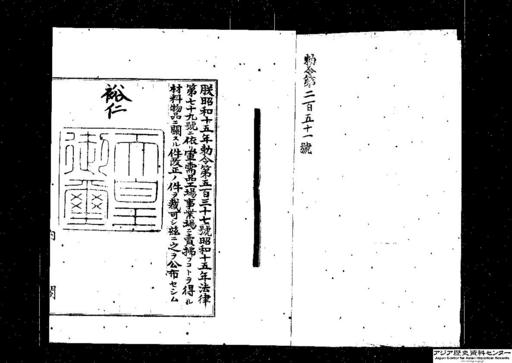 勅令第二百五十一號
朕昭和十五年勅令第五百三十七號昭和十五年法律
第七十九號ニ依リ軍需品工場事業場ニ賣拂フコトヲ得ル
材料物品ニ關スル件改正ノ件ヲ裁可シ玆ニ之ヲ公布セシム
裕仁
天皇御璽
内閣
アジア歴史資料センター
Japan Center for Asian Historical Records